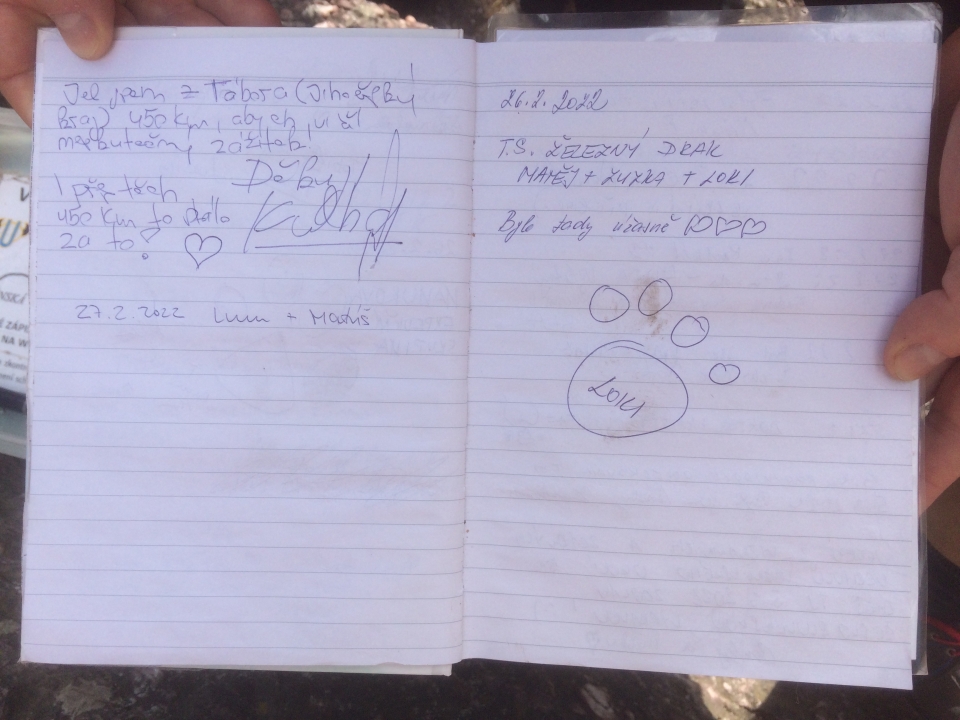 Jel jsem z Tábora (Jihočeský
kraj) 450 km, abych užil
neskutečný zážitek!
Děkuji!
I přes těch
450 km to stálo
za to!
27.2.2022 + Matěš
26.2.2022
T.S. ŽELEZNÝ DRAK
MATĚJ + ZUZKA + LOKI
Bylo tady úžasně
LOKI